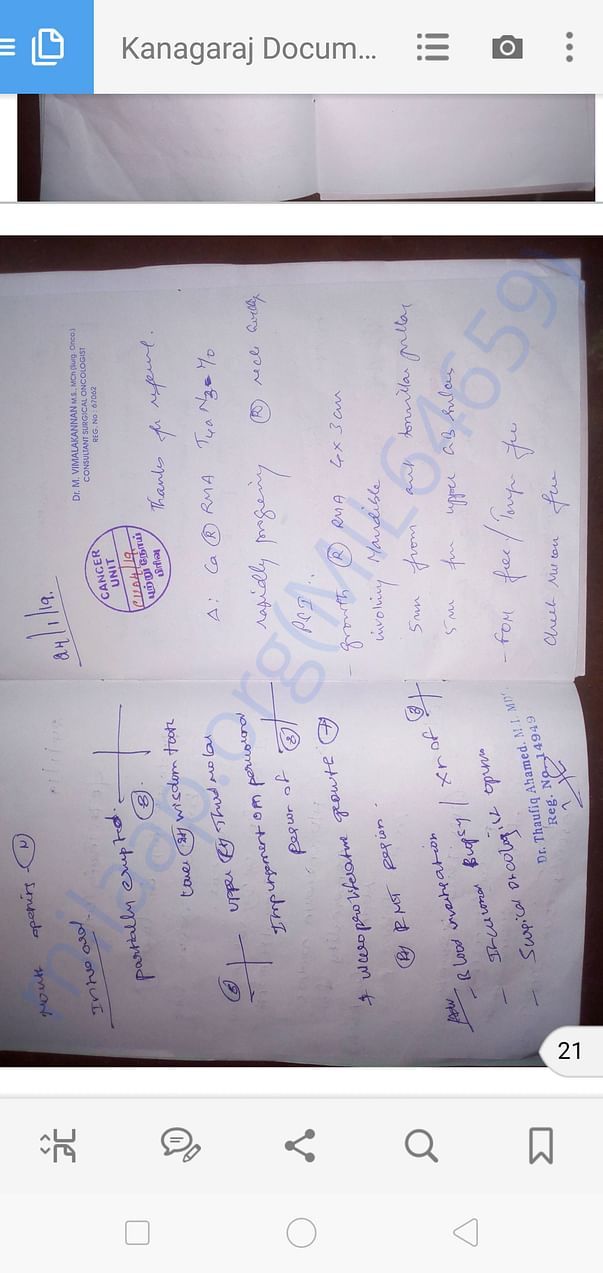 Kanagaraj Docum...
Mouth opening - N
Intraoral
partially erupted. 8
Lower Rt wisdom tooth
8 upper Rt Third molar
Impingement on pericoronal
Region of 8
ulceroproliferative growth +
Rt RMT region.
Adv
- Blood investigation
- Incisional Biopsy / Xr of 8
- Surgical oncologist opinion
Dr. Thaufiq Ahamed. M.I. MDS.
Reg. No. 14949
24/1/19.
Dr. M. VIMALAKANNAN M.S., MCh (Surg. Onco.)
CONSULTANT SURGICAL ONCOLOGIST
REG. NO : 67062
CANCER
UNIT
புற்று நோய்
பிரிவு
Thanks for referral.
Δ: Ca R RMA T4a M0
rapidly progressing R neck
- growth R RMA 4 x 3 cm
involving Mandible
5mm from ant tonsillar pillar
5mm from upper GB sulcus
- FOM free / Tongue free
Cheek Mucosa free
milaap.org(MIL646591)
21